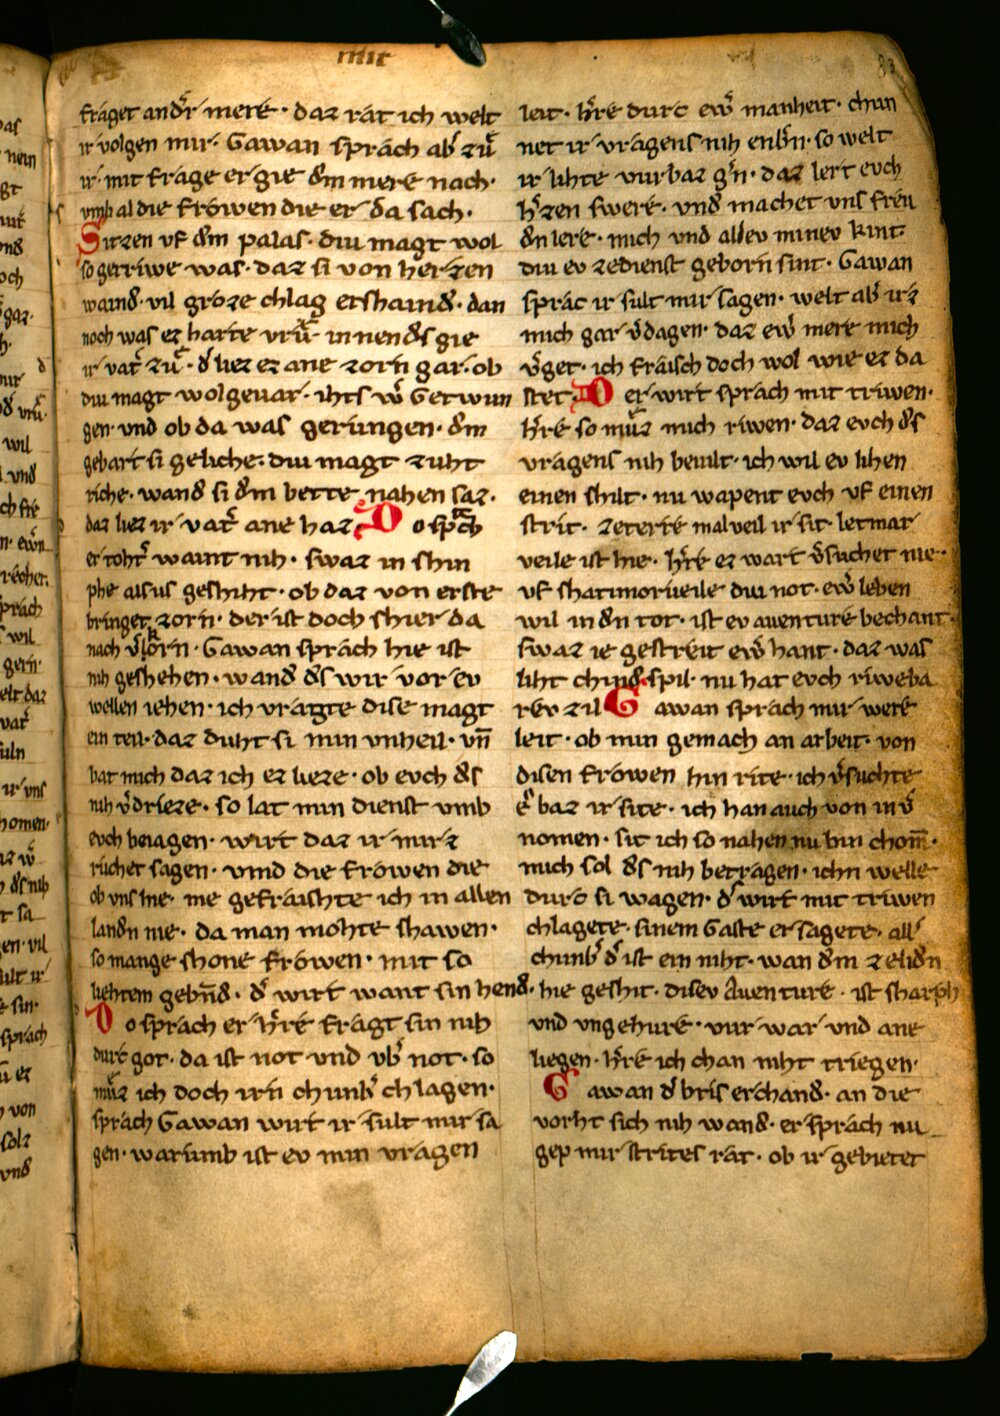 fraget andˀr mere · daz rat ich welt
ir volgen mir · Gawan sprach abˀ zuͦ
ir · mit frage er gie dˀm mere nach ·
vmb al die frowen die er da sach ·
Sitzen vf dˀm palas · diu magt wol
so getriwe was · daz si von herzen
waindˀ · vil groze chlag ershaindˀ · dan
noch was ez harte vruͦ · innen dˀs gie
ir vatˀ zuͦ · dˀ liez ez ane zorn gar · ob
diu magt wolgevar · ihts wˀ Getwun
gen · vnd ob da was gerungen · dˀm
gebart si geliche · diu magt zuht
riche · wandˀ si dˀm bette nahen saz ·
daz liez ir vatˀ ane haz · Do sprach
er tohtˀ waint nih · swaz in shin
phe alsus geshiht · ob daz von erste
bringet zorn · der ist doch shier da
nach vˀkorn · Gawan sprach hie ist
nih geshehen · wandˀ dˀs wir vor ev
wellen iehen · ich vragte dise magt
ein teil · daz duht si min vnheil · vn̄
bat mich daz ich ez lieze · ob evch dˀs
nih vˀdrieze · so lat min dienst vmb
evch beiagen · wirt daz ir mirz
ruͦchet sagen · vmd die frowen die
ob vns hie · ine gefraishte ich in allen
landˀn nie · da man mohte shawen ·
so mange shone frowen · mit so
liehtem gebn̄dˀ · dˀ wirt want sin hendˀ ·
Do sprach er hˀre fragt sin nih
durc got · da ist not vnd vbˀ not · so
muͦz ich doch irn chunbˀ chlagen ·
sprach Gawan wirt ir sult mir sa
gen · warumb ist ev min vragen
leit · hˀre durc ewˀ manheit · chun
net ir vragens nih enbˀn · so welt
ir lihte vurbaz gˀn · daz lert evch
hˀzen swere · vndˀ machet vns freu
dˀn lere · mich vnd allev minev kint
diu ev zedienst geborn sint · Gawan
sprac ir sult mir sagen · welt abˀ irz
mich gar vˀdagen · daz ewˀ mere mich
vˀget · ich fraisch doch wol wie ez da
stet · Der wirt sprach mit triwen ·
hˀre so muͦz mich riwen · daz evch dˀs
vragens nih bevilt · ich wil ev lihen
einen shilt · nu wapent evch vf einen
strit · zeterre malveil ir sit · letmar
veile ist hie · hˀre ez wart vˀsuchet nie ·
vf shatimorveile diu not · ewˀ leben
wil in dˀn tot · ist ev auenture bechant ·
swaz ie gestreit ewˀ hant · daz was
liht chindˀ spil · nu hat evch riweba
rev zil Gawan sprach mir were
leit · ob min gemach an arbeit · von
disen frowen hin rite · ich vˀsuchte
eˀ baz ir site · ich han auch von in vˀ
nomen · sit ich so nahen nu bin chom̄ ·
mich sol dˀs nih betragen · ichn welle
durc si wagen · dˀ wirt mit triwen
chlagete · sinem Gaste er sagete · allˀ
chunbˀ dˀ ist ein niht · wan dˀm zelidˀn
hie geshit · disev Auenture · ist sharph
vnd vngehure · vur war vnd ane
liegen · hˀre ich chan niht triegen ·
Gawan dˀ bris erchandˀ · an die
vorht sich nih wandˀ · er sprach nu
gep mir strites rat · ob ir gebietet